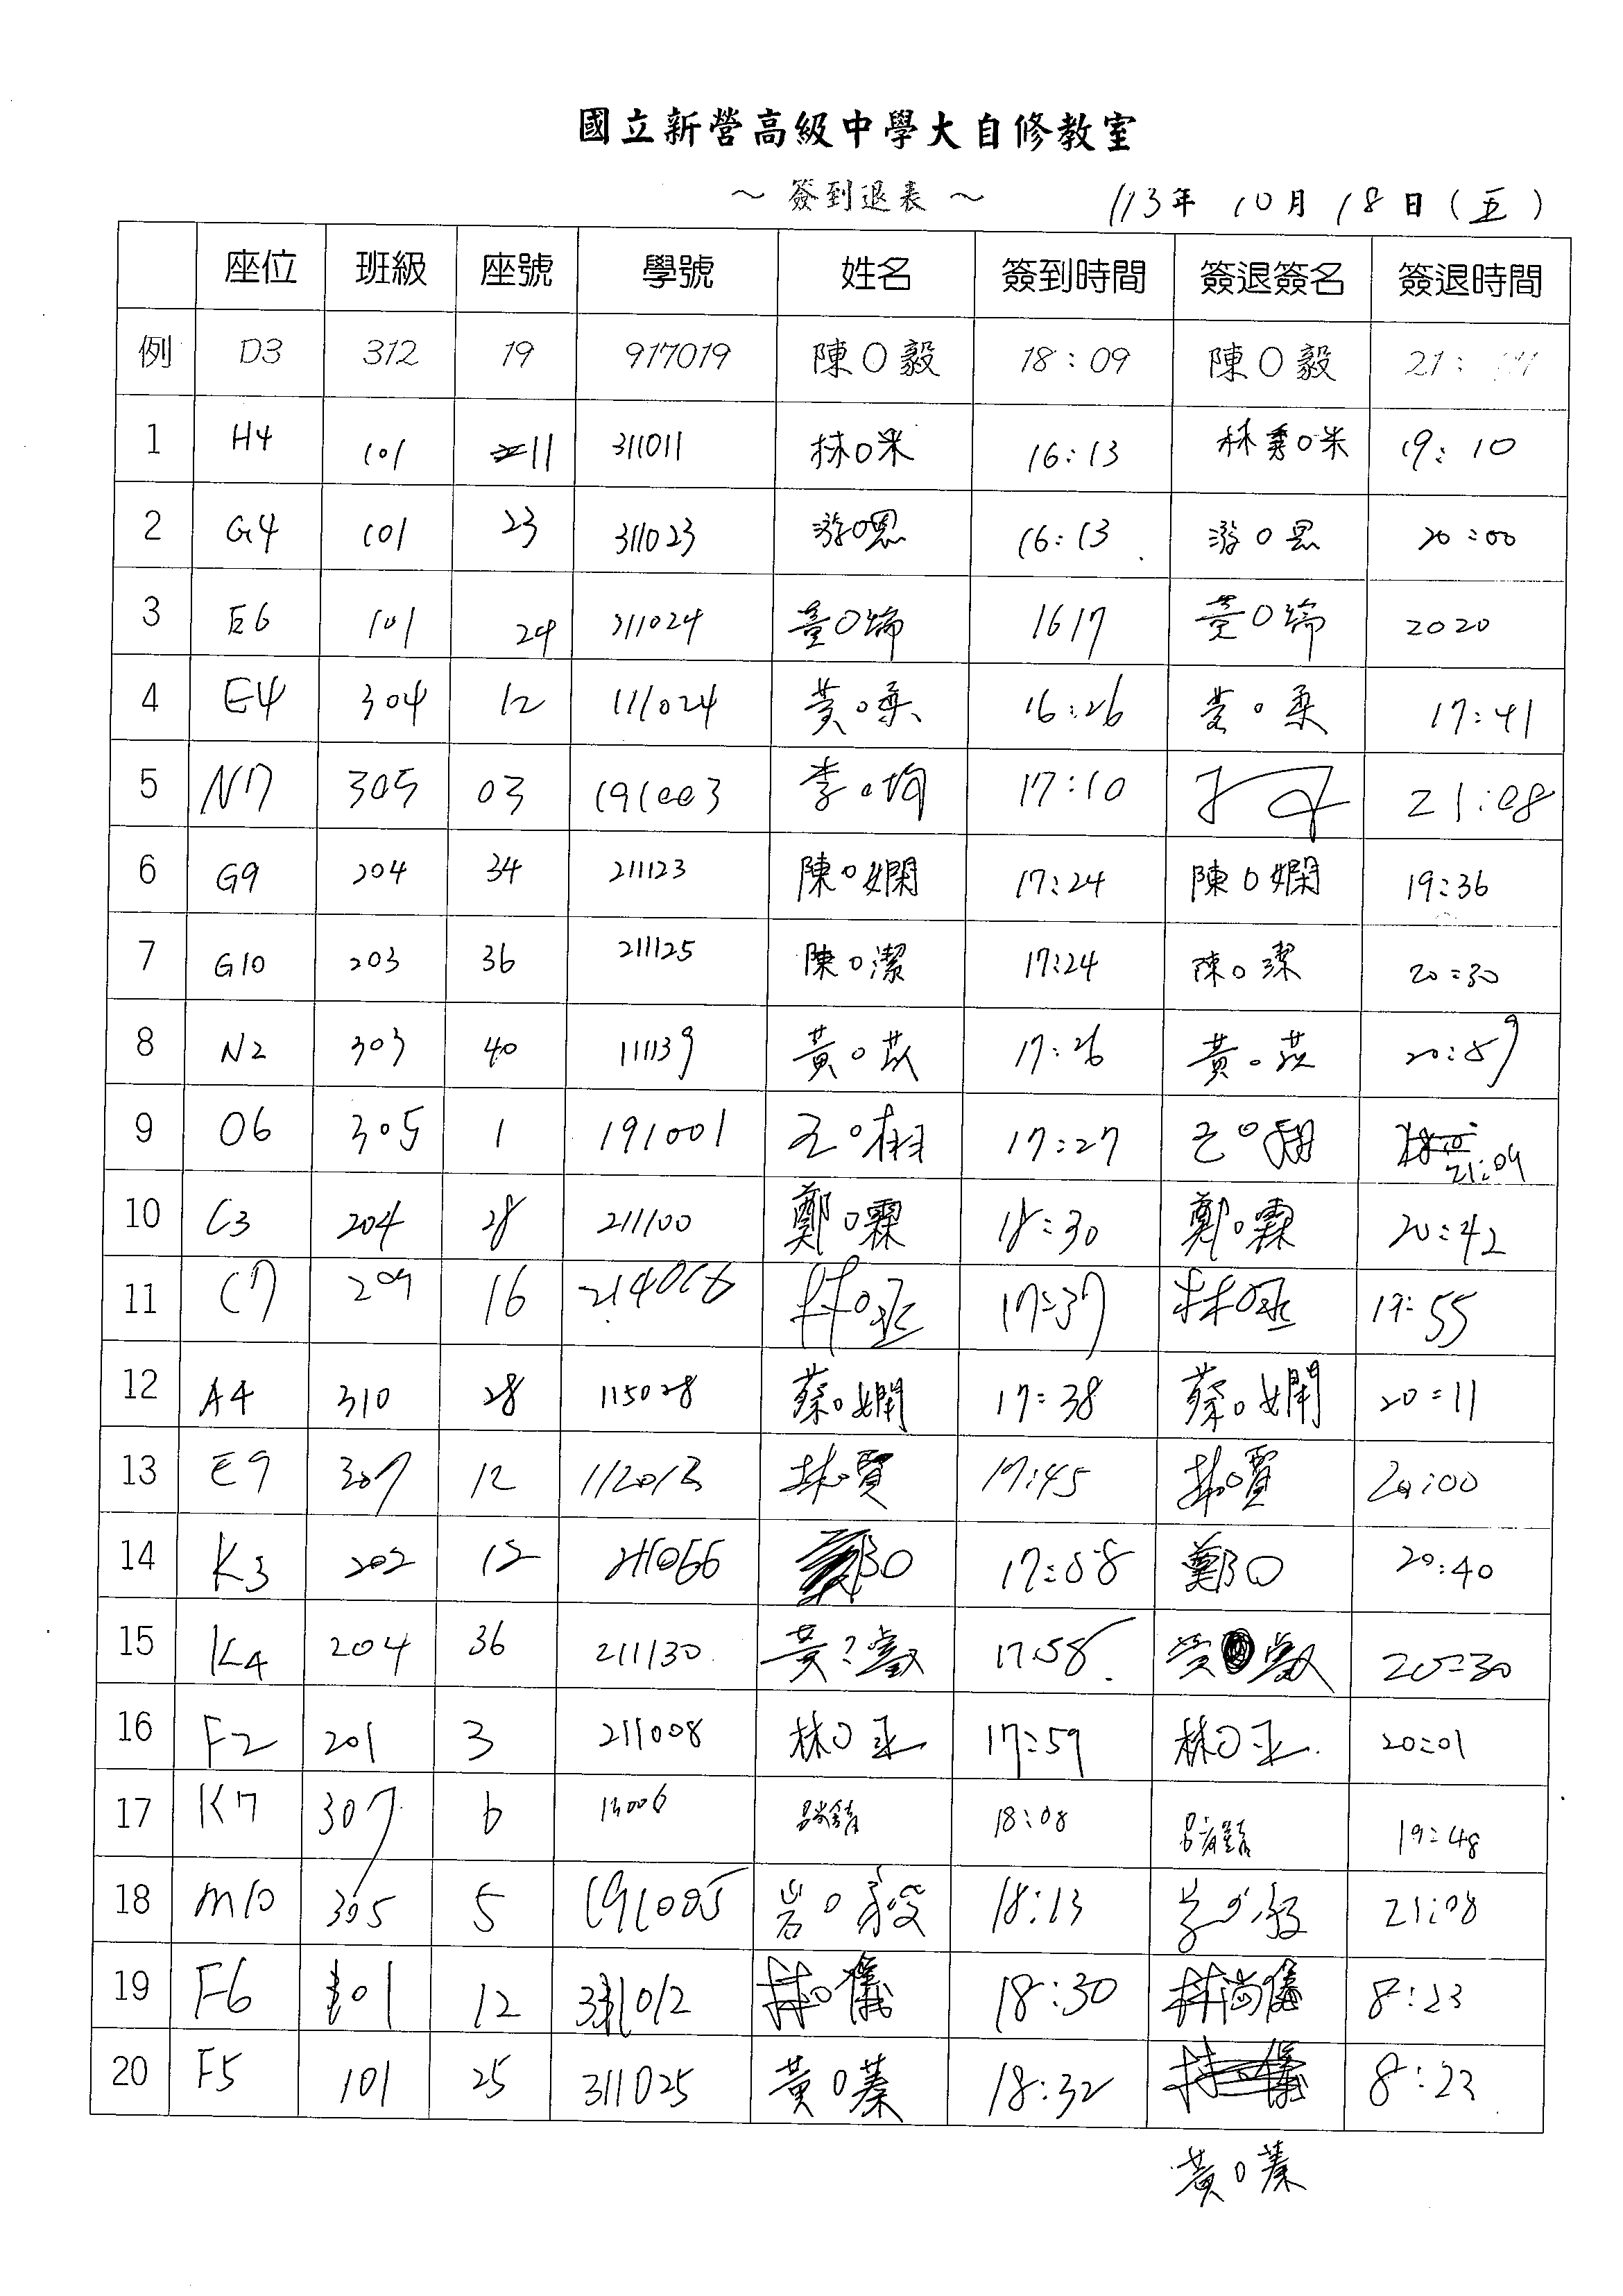 國立新營高級中學大自修教室
～ 簽到退表 ～ 113年 10月 18日(五)
座位 班級 座號 學號 姓名 簽到時間 簽退簽名 簽退時間
例 D3 312 19 917019 陳O毅 18:09 陳O毅 21:
1 H4 101 11 311011 林O米 16:13 林O米 19:10
2 G4 101 23 311023 游O恩 16:13 游O恩 20:00
3 E6 101 24 311024 黃O端 1617 黃O端 2020
4 E4 304 12 111024 黃O柔 16:26 黃O柔 17:41
5 N7 305 03 191003 李O均 17:10 21:08
6 G9 204 34 211123 陳O嫻 17:24 陳O嫻 19:36
7 G10 203 36 211125 陳O潔 17:24 陳O潔 20:30
8 N2 303 40 111139 黃O苡 17:26 黃O苡 20:59
9 O6 305 1 191001 17:27 21:09
10 C3 204 28 211100 鄭O霖 18:30 鄭O霖 20:42
11 C7 209 16 214016 林O丞 17:37 林O丞 19:55
12 A4 310 28 115028 蔡O嫻 17:38 蔡O嫻 20:11
13 E9 307 12 112013 林O賢 17:45 林O賢 20:00
14 K3 202 12 211066 鄭O 17:58 鄭O 20:40
15 K4 204 36 211130 黃 17:58 黃 20:30
16 F2 201 3 211008 林O丞 17:59 林O丞 20:01
17 K7 307 6 18:08 19:48
18 M10 305 5 191005 岩O毅 18:13 21:08
19 F6 101 12 311012 林O儀 18:30 林尚儀 8:23
20 F5 101 25 311025 黃O蓁 18:32 8:23
黃O蓁